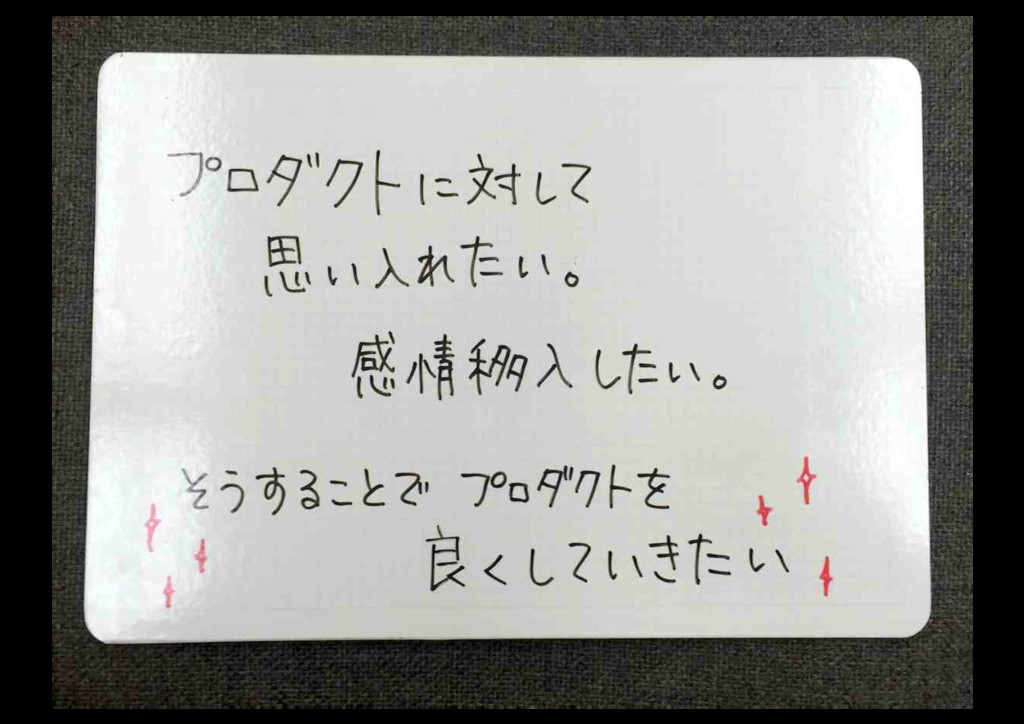 プロダクトに対して
思い入れたい。
感情移入したい。
そうすることで プロダクトを
良くしていきたい